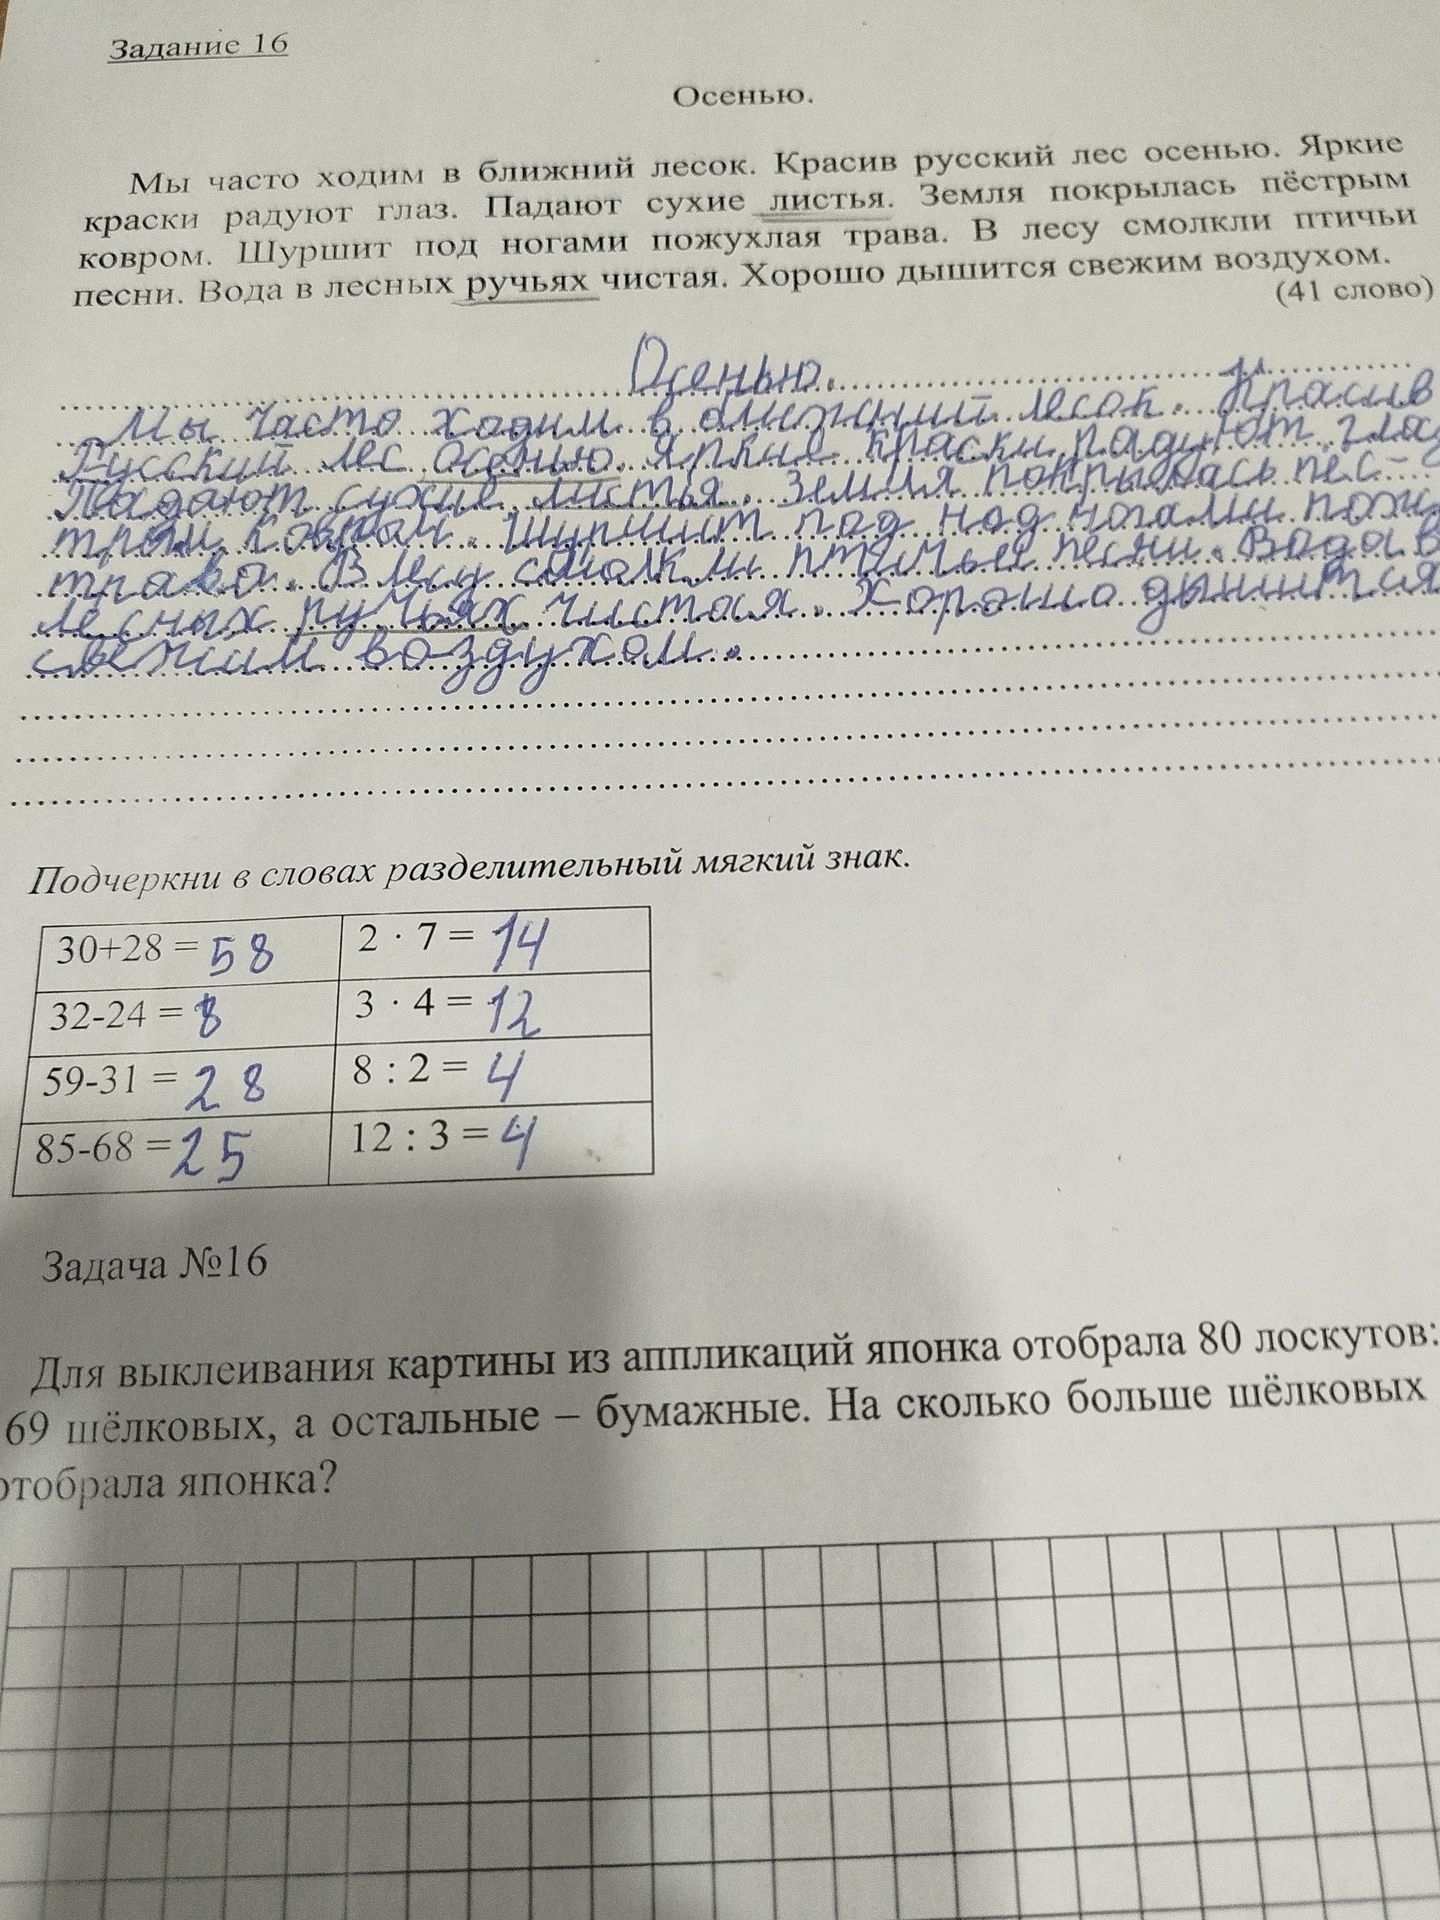 Задание 16
Осенью.
Мы часто ходим в ближний лесок. Красив русский лес осенью. Яркие
краски радуют глаз. Падают сухие листья. Земля покрылась пёстрым
ковром. Шуршит под ногами пожухлая трава. В лесу смолкли птичьи
песни. Вода в лесных ручьях чистая. Хорошо дышится свежим воздухом.
(41 слово)
Осенью.
Мы часто ходим в ближний лесок. Красив
Русский лес осенью. Яркие краски радуют глаз
Падают сухие листья. Земля покрылась пёс-
ковром. Шуршит под над ногами
трава. В лесу смолкли птичье песни. Вода в
лесных ручьях чистая. Хорошо дышится
свежим воздухом.
Подчеркни в словах разделительный мягкий знак.
30+28 = 58 2 · 7 = 14
32-24 = 8 3 · 4 = 12
59-31 = 28 8 : 2 = 4
85-68 = 25 12 : 3 = 4
Задача №16
Для выклеивания картины из аппликаций японка отобрала 80 лоскутов:
69 шёлковых, а остальные – бумажные. На сколько больше шёлковых
отобрала японка?